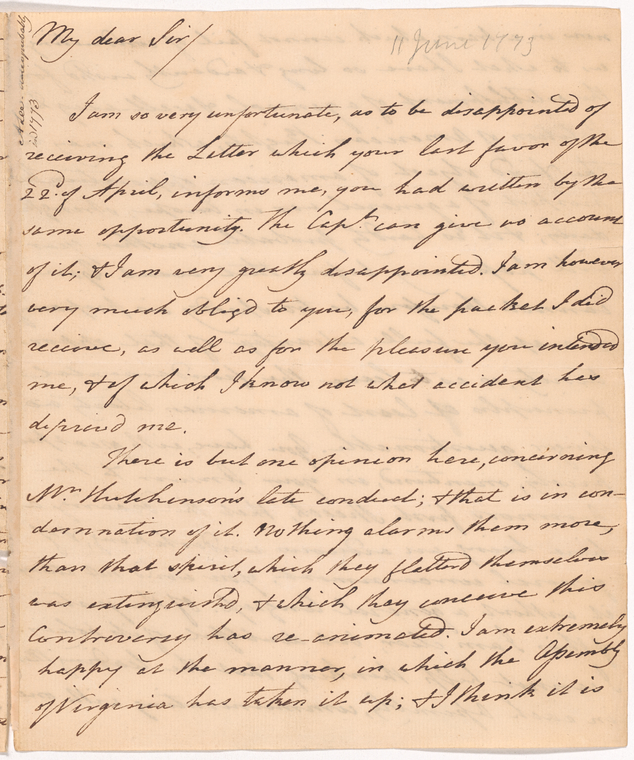 My dear Sir/
11 June 1773
I am so very unfortunate, as to be disappointed of
receiving the Letter which your last favor of the
22d. of April, informs me, you had written by the
same opportunity. The Capt. can give no account
of it; & I am very greatly disappointed. I am however
very much obligd to you, for the packet I did
receive, as well as for the pleasure you intended
me, & of which I know not what accident has
deprivd me.
There is but one opinion here, concerning
Mr. Hutchinson's late conduct; & that is in con-
demnation of it. Nothing alarms them more,
than that spirit, which they flatterd themselves
was extinguishd, & which they conceive this
Controversy has re-animated. I am extremely
happy at the manner, in which the Assembly
of Virginia has taken it up; & I think it is
1773